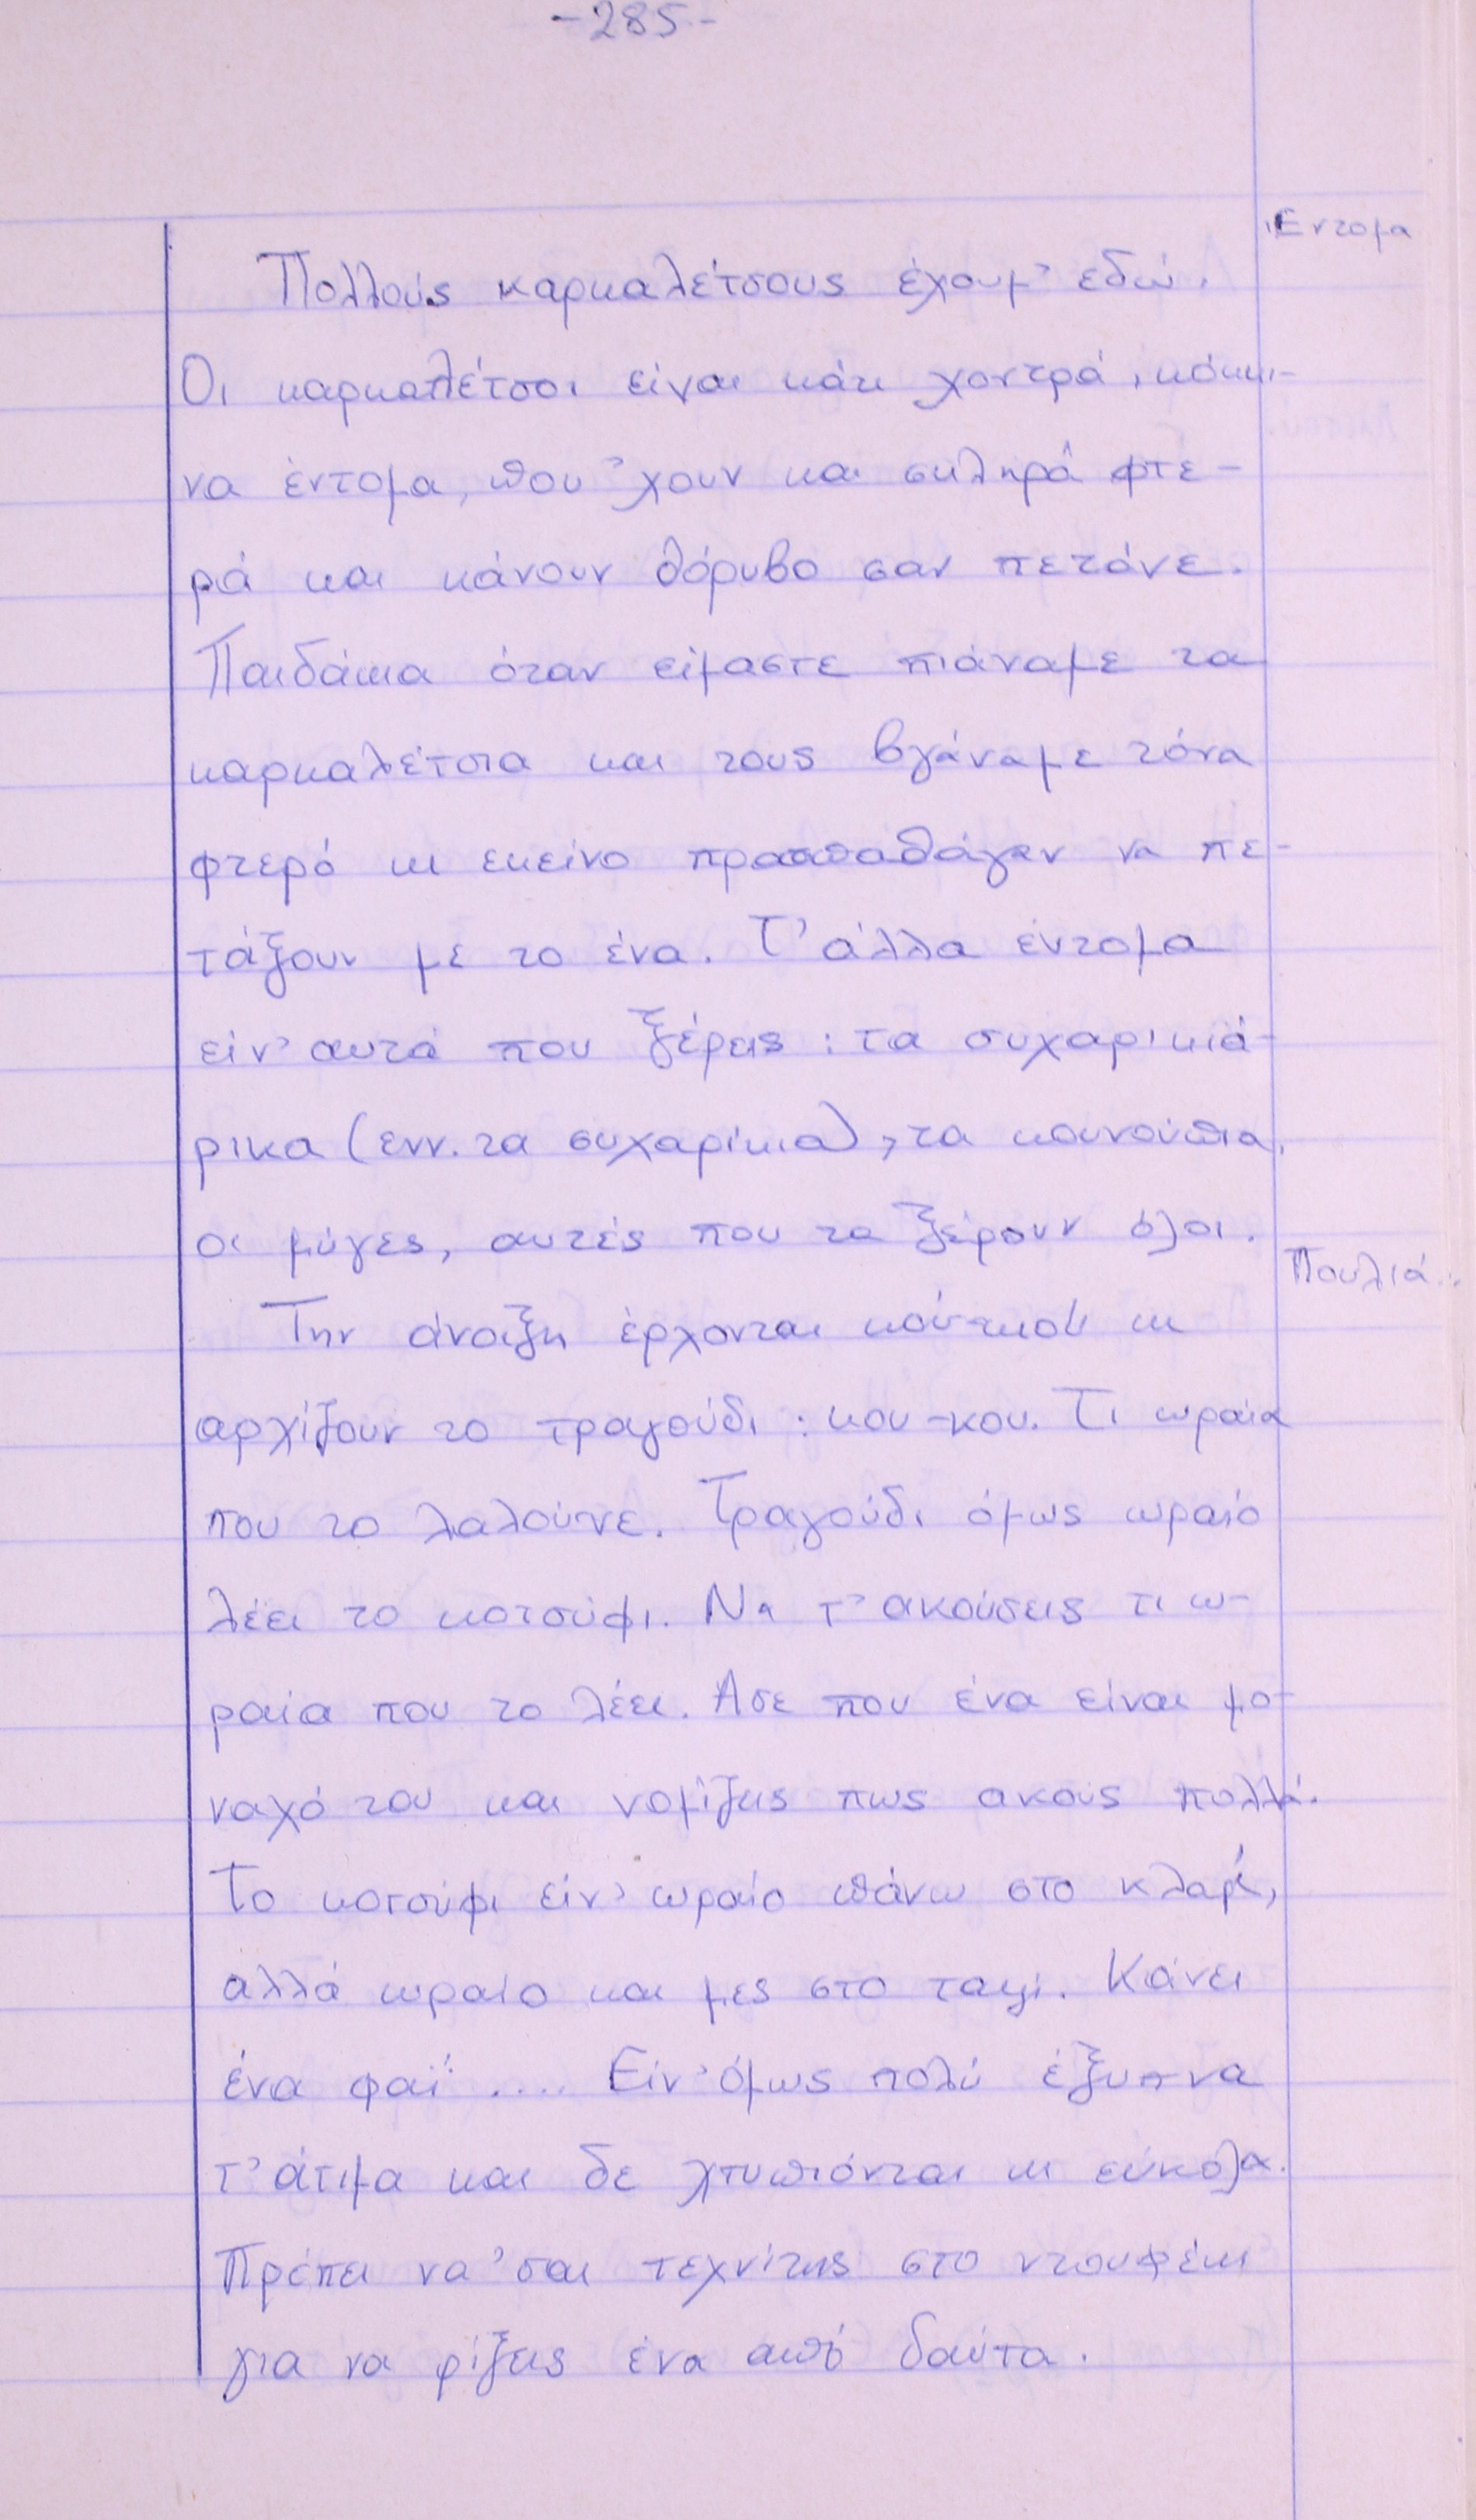 -285-
Έντομα
Πολλούς καρκαλέτσους έχουμ' εδώ.
Οι καρκαλέτσοι είναι κάτι χοντρά, κόκκι-
να έντομα, που 'χουν και σκληρά φτε-
ρά και κάνουν θόρυβο σαν πετάνε.
Παιδάκια όταν είμαστε πιάναμε τα
καρκαλέτσια και τους βγάναμε τόνα
φτερό κι εκείνο προσπαθάγαν να πε-
τάξουν με το ένα. Τ' άλλα έντομα
είν' αυτά που ξέρεις : τα συχαρικιά-
ρικα (ενν. τα συχαρίκια), τα κουνούπια,
οι μύγες, αυτές που τα ξέρουν όλοι.
Πουλιά..
Την άνοιξη έρχονται κούτκοι κι
αρχίζουν το τραγούδι : κου-κου. Τι ωραία
που το λαλούνε. Τραγούδι όμως ωραίο
λέει το κοτσύφι. Να τ' ακούσεις τι ω-
ραία που το λέει. Άσε που ένα είναι μο-
ναχό του και νομίζεις πως ακούς πολλά.
Το κοτσύφι είν' ωραίο πάνω στο κλαρί,
αλλά ωραίο και μες στο ταψί. Κάνει
ένα φαΐ .... Είν' όμως πολύ έξυπνα
τ' άτιμα και δε χτυπιόνται κι εύκολα.
Πρέπει να 'σαι τεχνίτης στο ντουφέκι
για να ρίξεις ένα από δαύτα.